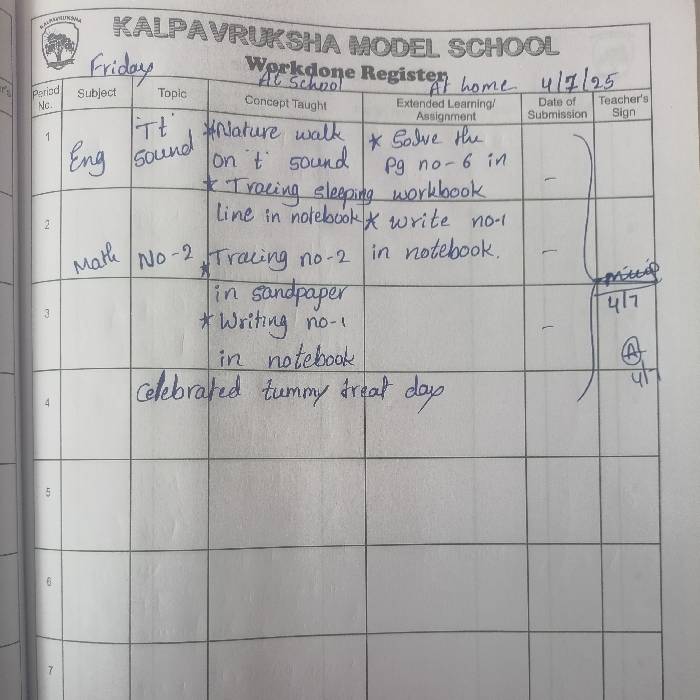 KALPAVRUKSHA
KALPAVRUKSHA MODEL SCHOOL
Workdone Register
Friday At School At home 4/7/25
Period No. Subject Topic Concept Taught Extended Learning/ Assignment Date of Submission Teacher's Sign
1 Eng "Tt" sound *Nature walk * Solve the
on "t" sound Pg no-6 in
* Tracing sleeping workbook –
2 line in notebook * write no-1
Math No-2 * Tracing no-2 in notebook. –
in sandpaper
3 * Writing no-1 –
in notebook
4/7
4/7
4 Celebrated tummy treat day
5
6
7